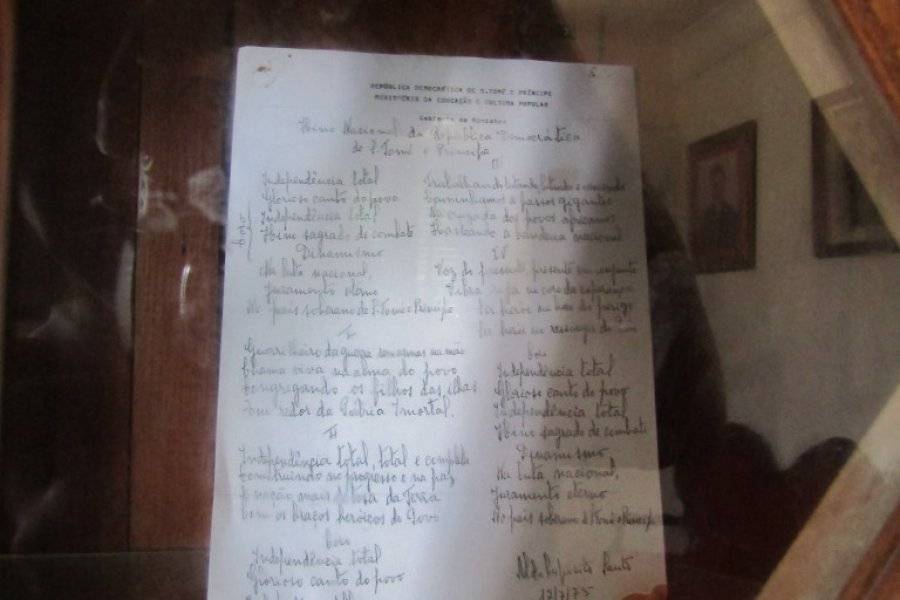 REPÚBLICA DEMOCRÁTICA DE S.TOMÉ E PRÍNCIPE
MINISTÉRIO DA EDUCAÇÃO E CULTURA POPULAR
Gabinete do Ministro
Hino Nacional da República Democrática
de S. Tomé e Príncipe
Independência total
Glorioso canto do povo
Independência total
Hino sagrado de combate
Dinamismo
Na luta nacional,
Juramento eterno
No país soberano de S. Tomé e Príncipe
I
Guerrilheiro da guerra sem armas na mão
Chama viva na alma do povo
Congregando os filhos das ilhas
Em redor da Pátria Imortal.
II
Independência total, total e completa
Construindo no progresso e na paz,
A nação mais ditosa da Terra
Com os braços heróicos do Povo
Coro
Independência total
Glorioso canto do povo
III
Trabalhando, lutando, lutando e vencendo
Caminhamos a passos gigantes
Na cruzada dos povos africanos
Hasteando a bandeira nacional
IV
Voz do povo, presente, presente em conjunto
Vibra rija no coro da esperança
Ser herói na hora do perigo
Ser herói no ressurgir do País
Coro
Independência total
Glorioso canto do povo
Independência total
Hino sagrado de combate
Dinamismo
Na luta nacional,
Juramento eterno
No país soberano de S. Tomé e Príncipe
Espírito Santo
12/7/75